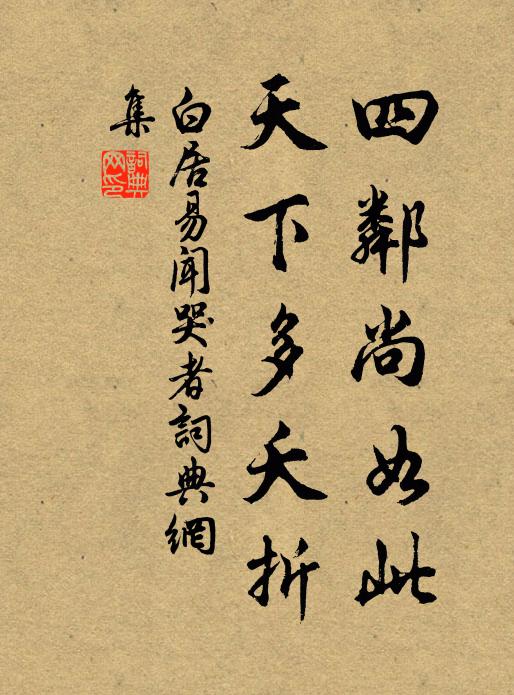 四鄰尚如此
天下多夭折
白居易聞哭者詞典網
集
詞典
网印